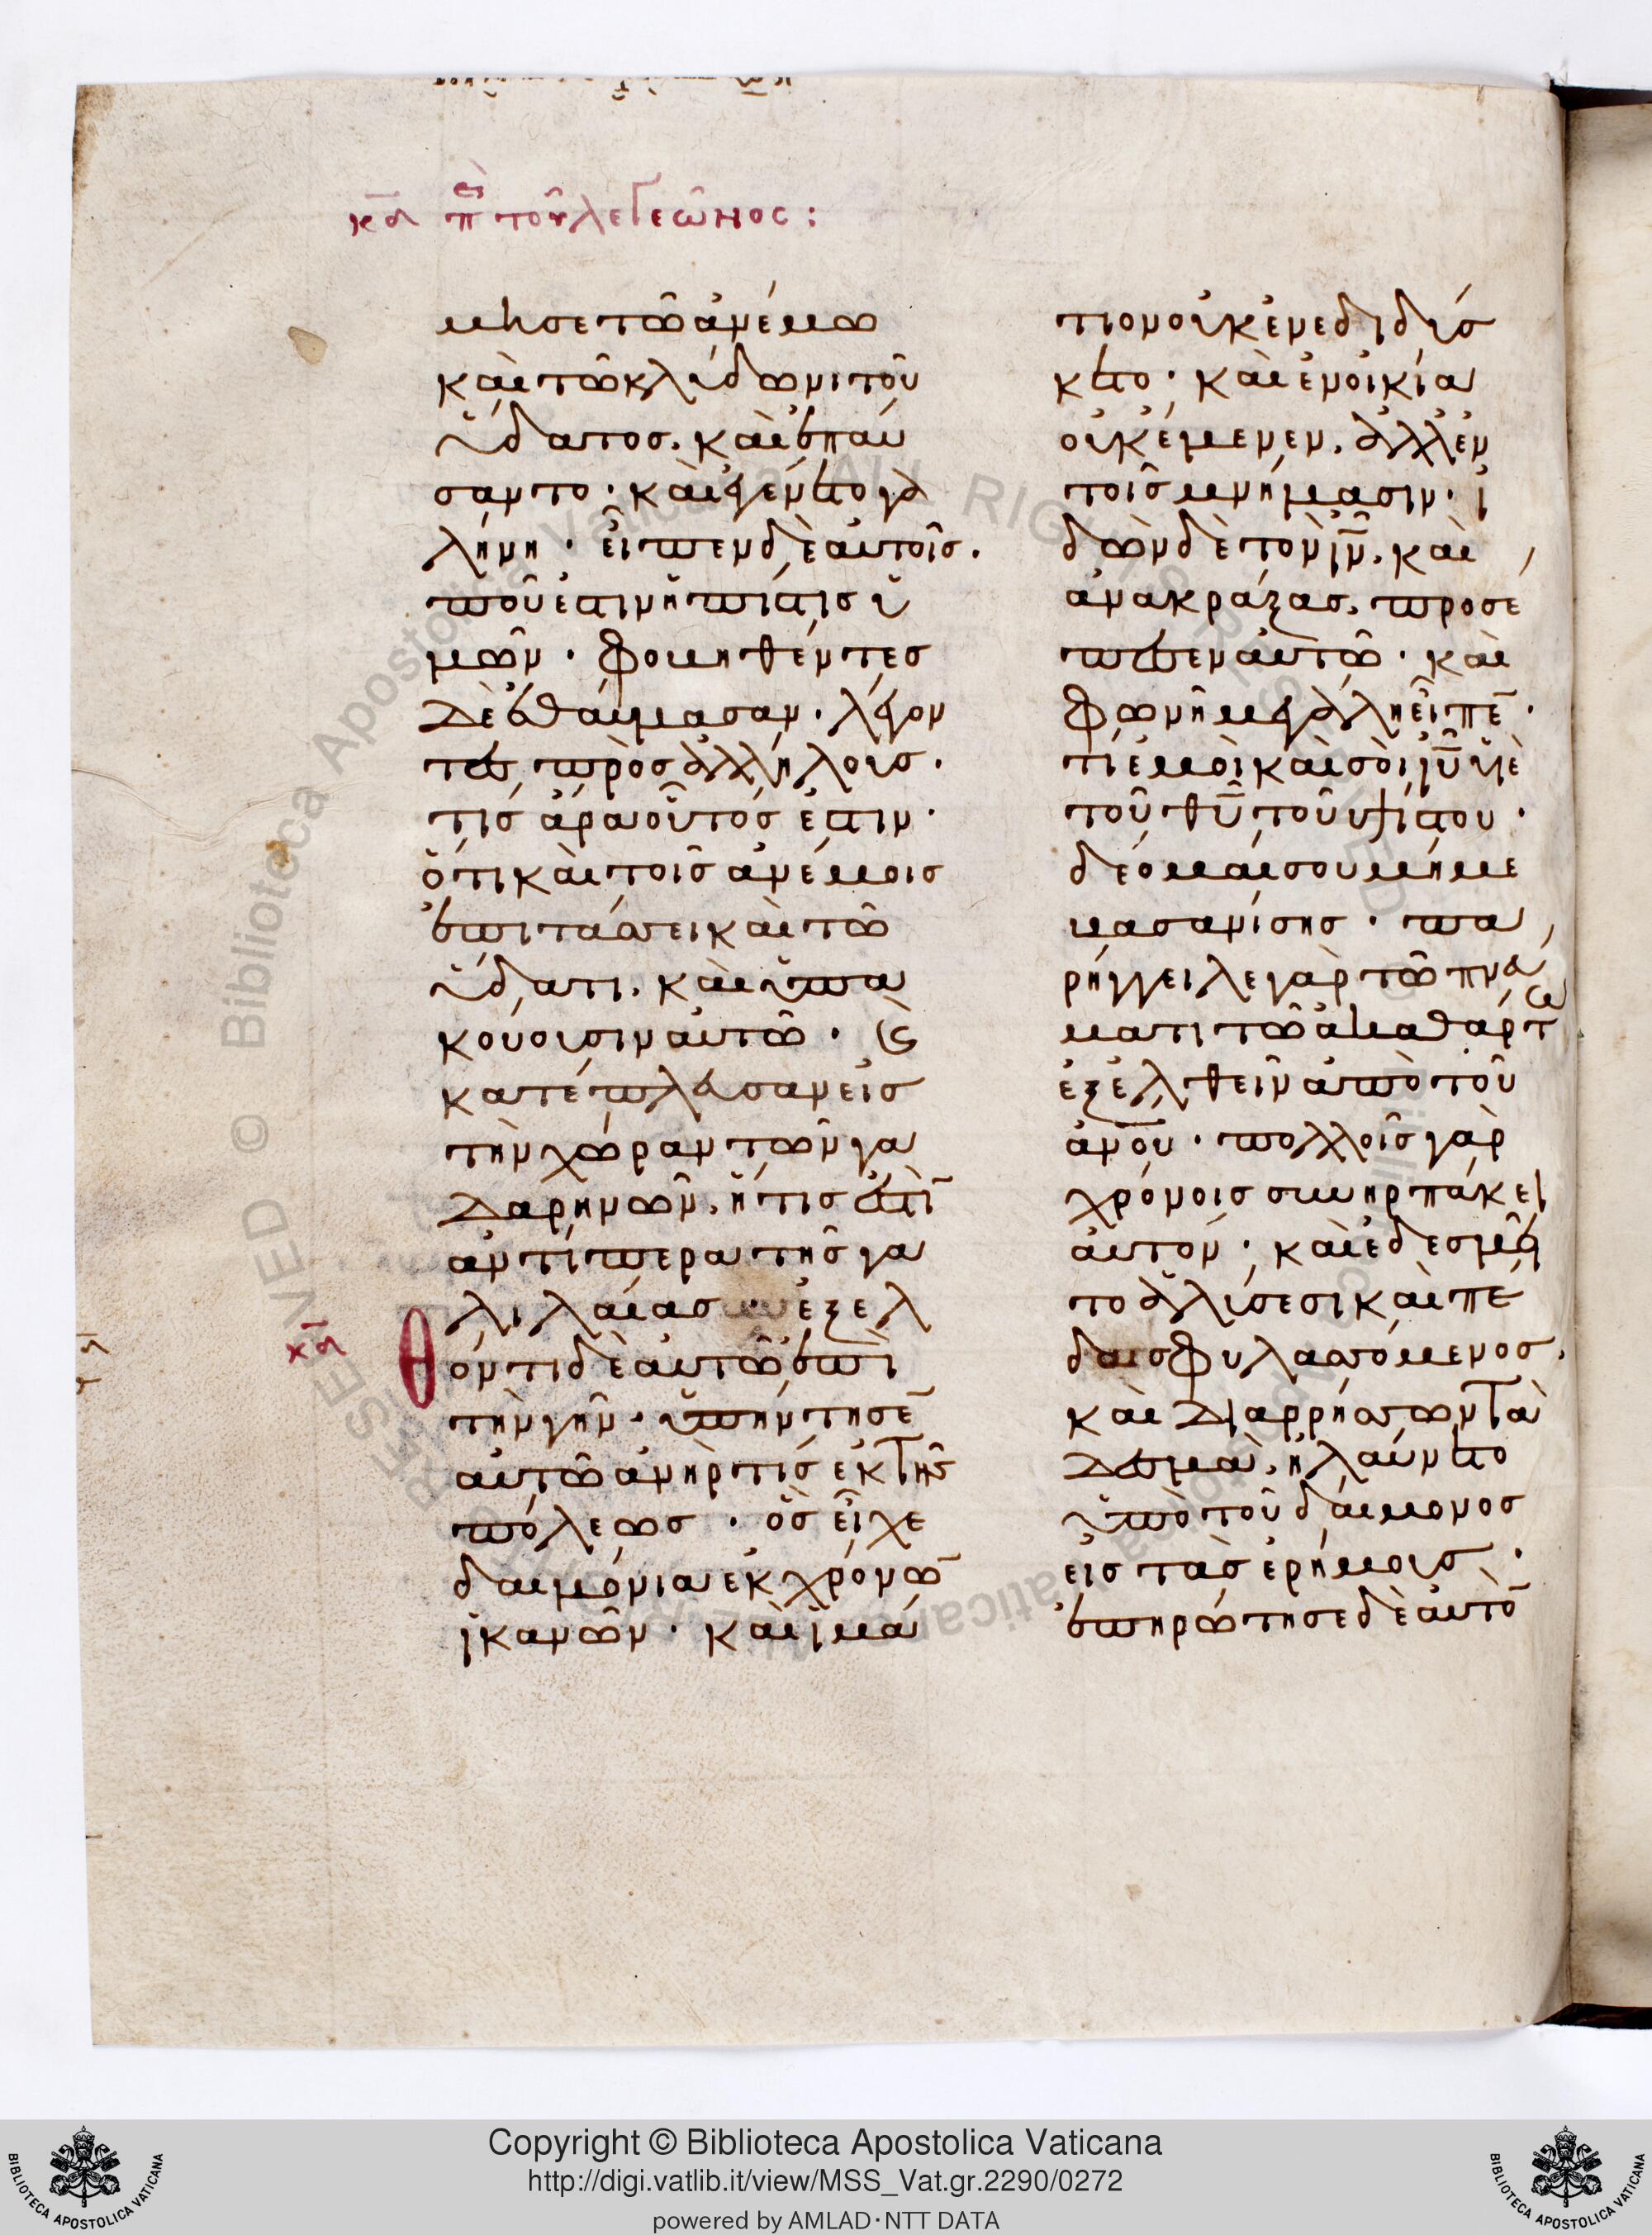 κα περὶ τοῦ λεγεῶνος:
μησε τῶ ἀνέμω
καὶ τῶ κλύδωνι τοῦ
ὕδατος. καὶ ἐπαύ
σαντο· καὶ ἐγένετο γα
λήνη· εἶπεν δὲ αὐτοῖς·
ποῦ ἐστιν ἡ πίστις ὑ
μῶν· φοβηθέντες
δὲ ἐθαύμασαν· λέγον
τες πρὸς ἀλλήλους·
τίς ἄρα οὗτός ἐστιν·
ὅτι καὶ τοῖς ἀνέμοις
ἐπιτάσσει καὶ τῶ
ὕδατι. καὶ ὑπα
κούουσιν αὐτῶ· ϗ
κατέπλευσαν εἰς
τὴν χώραν τῶν γα
δαρηνῶν. ἥτις ἐστὶ̄
ἀντίπερα τῆς γα
λιλαίας· ἐξελ
κα
θόντι δὲ αὐτῶ ἐπὶ
τὴν γῆν· ὑπήντησε̄
αὐτῶ ἀνήρ τίς ἐκ τῆς
πόλεως· ὃς εἶχε
δαιμόνια ἐκ χρόνω̄
ἱκανῶν· καὶ ἱμά
τιον οὐκ ἐνεδιδύσ
κετο· καὶ ἐν οἰκία
οὐκ ἔμενεν. ἀλλ' ἐν
τοῖς μνήμασιν· ἰ
δὼν δὲ τὸν ιν̄. καὶ
ἀνακράξας. προσέ
πεσεν αὐτῶ· καὶ
φωνῆ μεγάλη εἶπε̄·
τί ἐμοὶ καὶ σοὶ ιῡ υἱὲ
τοῦ θῡ τοῦ ὑψίστου·
δέομαί σου μή με
βασανίσης· πα
ρήγγειλε γὰρ τῶ πνα
ματι τῶ ἀκαθάρτω
ἐξελθεῖν ἀπὸ τοῦ
ἀνο̄υ· πολλοῖς γὰρ
χρόνοις συνηρπάκει
αὐτόν· καὶ ἐδεσμεῖ
το ἁλύσεσι καὶ πέ
δαις φυλασσόμενος·
καὶ διαρρήσσων τὰ
δεσμὰ. ἠλαύνετο
ὑπὸ τοῦ δαίμονος
εἰς τὰς ἐρήμους·
ἐπηρώτησε δὲ αὐτὸ̄
Copyright © Biblioteca Apostolica Vaticana
http://digi.vatlib.it/view/MSS_Vat.gr.2290/0272
powered by AMLAD·NTT DATA
BIBLIOTECA APOSTOLICA VATICANA
BIBLIOTECA APOSTOLICA VATICANA